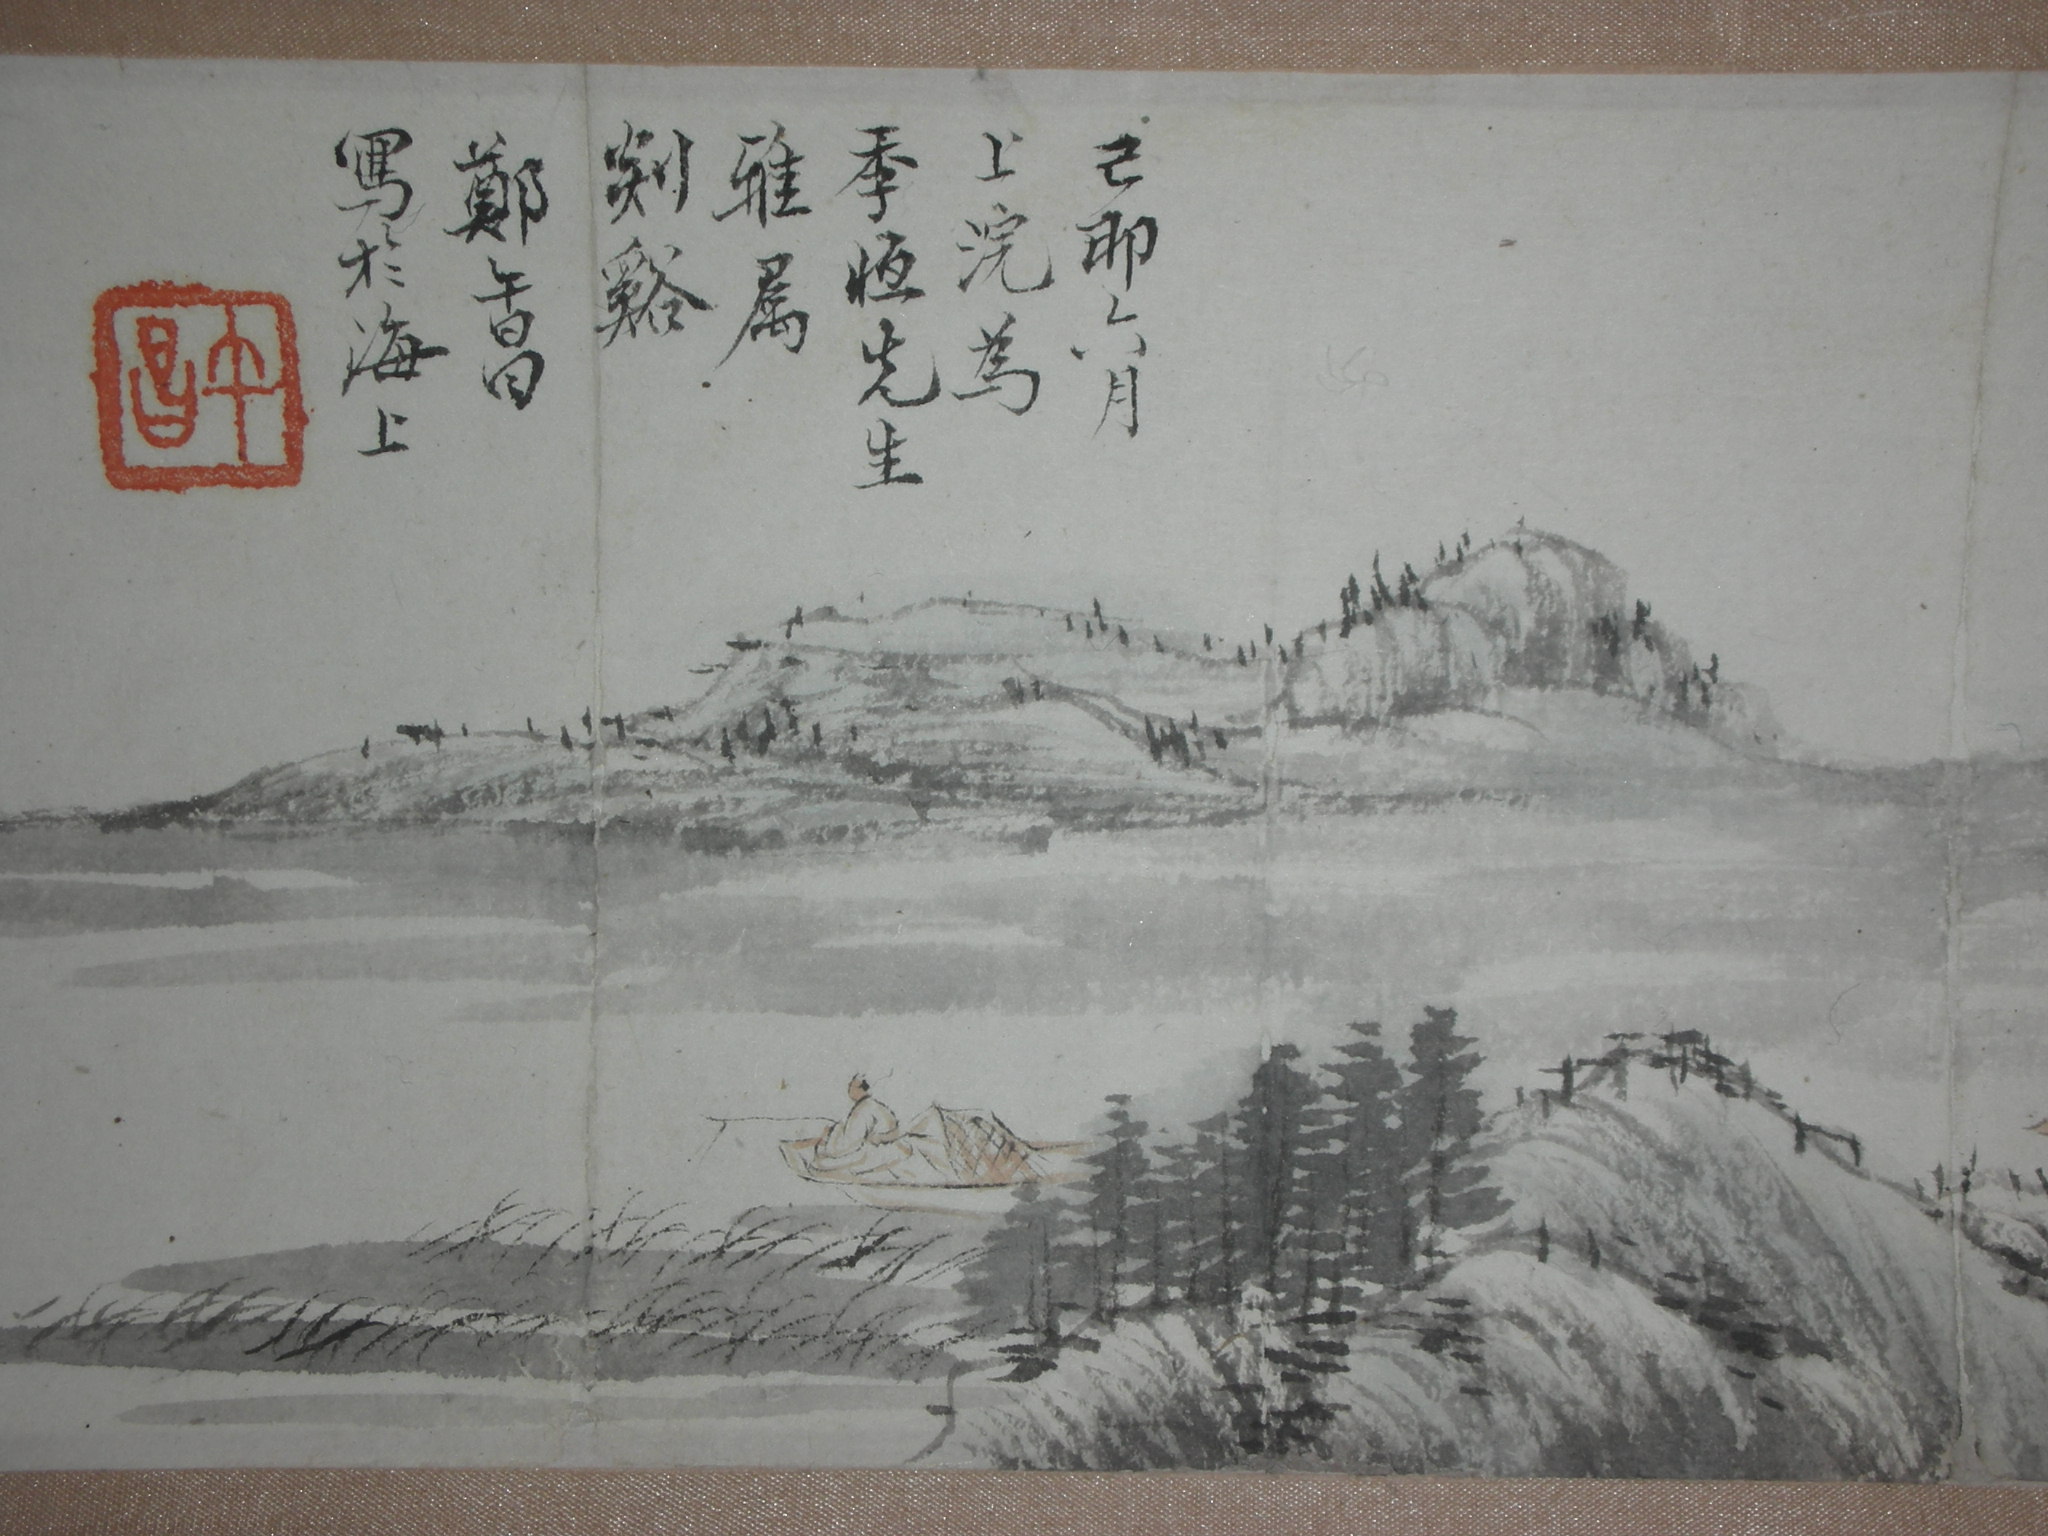 己卯六月
上浣為
季恆先生
雅属
剡谿
鄭午昌
寫於海上
午昌